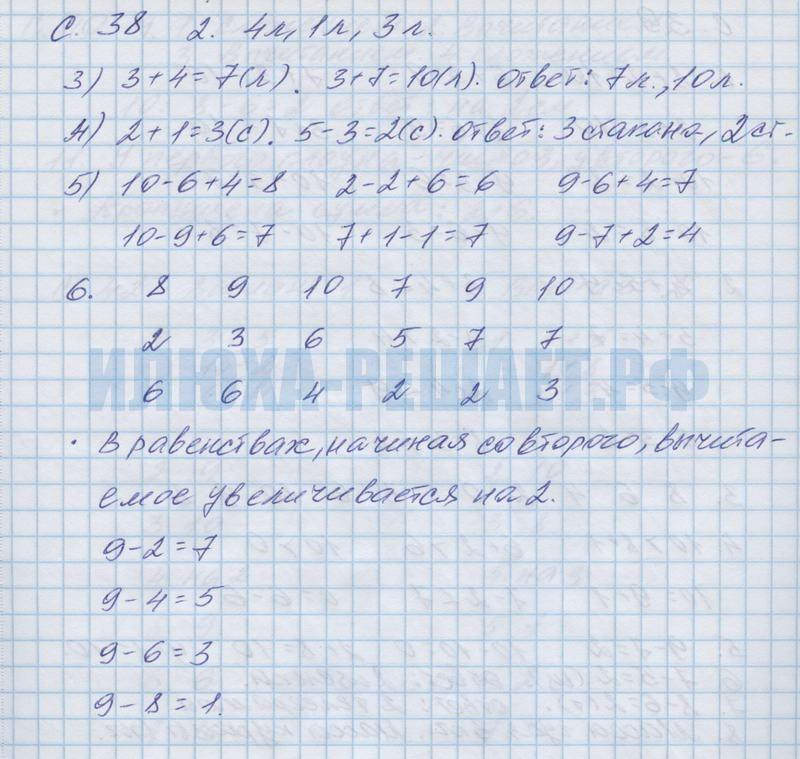 С. 38 2. 4л, 1л, 3л.
3) 3+4=7(л). 3+7=10(л). ответ: 7л., 10л.
4) 2+1=3(с). 5-3=2(с). ответ: 3 стакана, 2 ст.
5) 10-6+4=8 2-2+6=6 9-6+4=7
10-9+6=7 7+1-1=7 9-7+2=4
6. 8 9 10 7 9 10
2 3 6 5 7 7
ИЛЮХА-РЕШАЕТ.РФ
6 6 4 2 2 3
· В равенствах, начиная со второго, вычита-
емое увеличивается на 2.
9-2=7
9-4=5
9-6=3
9-8=1.